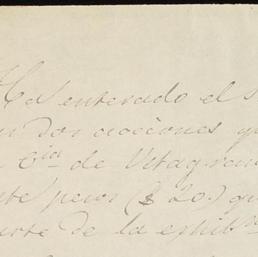 Ha enterado el
dos acciones
Cia de Vitagra
nte pesos ($20.) qu
arte de la exhib